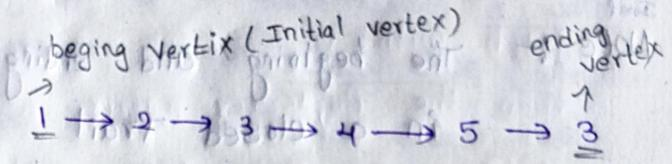 beging vertix (Initial vertex)
ending vertex
1 → 2 → 3 → 4 → 5 → 3